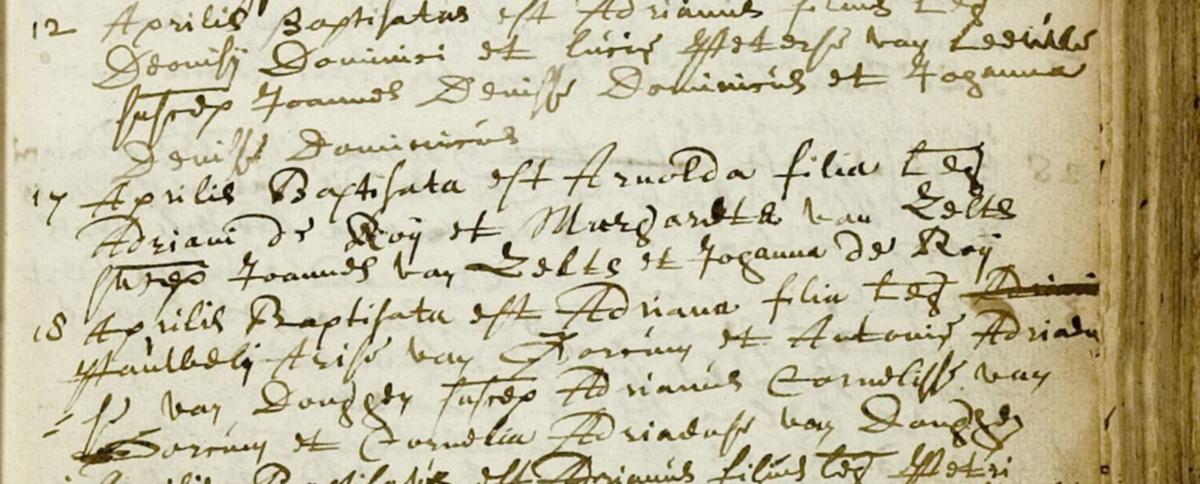 12 Aprilis Baptisatus est Adrianus filius leg
Deonisij Dominici et lucie Peterse van Leeuwe
suscep Joannes Denisse Dominicus et Joganna
Denisse Dominicus
17 Aprilis Baptisata est Arnolda filia leg
Adriani de Roij et Margareta van Zelts
suscep Joannes van Zelts et Joganna de Roij
18 Aprilis Baptisata est Adriana filia leg
Arise van Gorcum et Antonie Adriaen
se van Donggen suscep Adrianus Cornelisse van
Gorcum et Cornelia Adriaense van Donggen
Baptisatus est Adrianus filius leg Petri